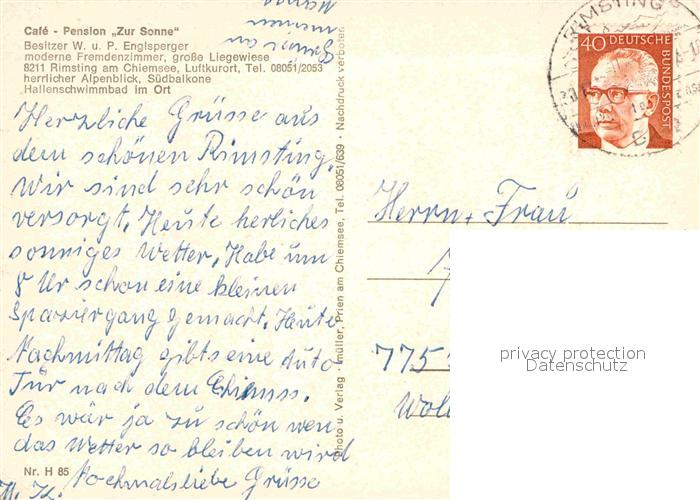 Café - Pension „Zur Sonne"
Besitzer W. u. P. Englsperger
moderne Fremdenzimmer, große Liegewiese
8211 Rimsting am Chiemsee, Luftkurort, Tel. 08051/2053
herrlicher Alpenblick, Südbalkone
Hallenschwimmbad im Ort
Herzliche Grüsse aus
dem schönen Rimsting.
Wir sind sehr schön
versorgt. Heute herliches
sonniges Wetter, Habe um
8 Ur schon eine kleinen
Spaziergang gemacht. Heute
Nachmittag gibts eine Auto
Tur nach dem
Es wär ja zu schön wen
das Wetter so bleiben wird
Nochmals liebe Grüsse
Nr. H 85
Photo u. Verlag müller, Prien am Chiemsee, Tel. 08051/639 · Nachdruck verboten
RIMSTING
40 DEUTSCHE
BUNDESPOST
Herrn + Frau
775
Woll
privacy protection
Datenschutz